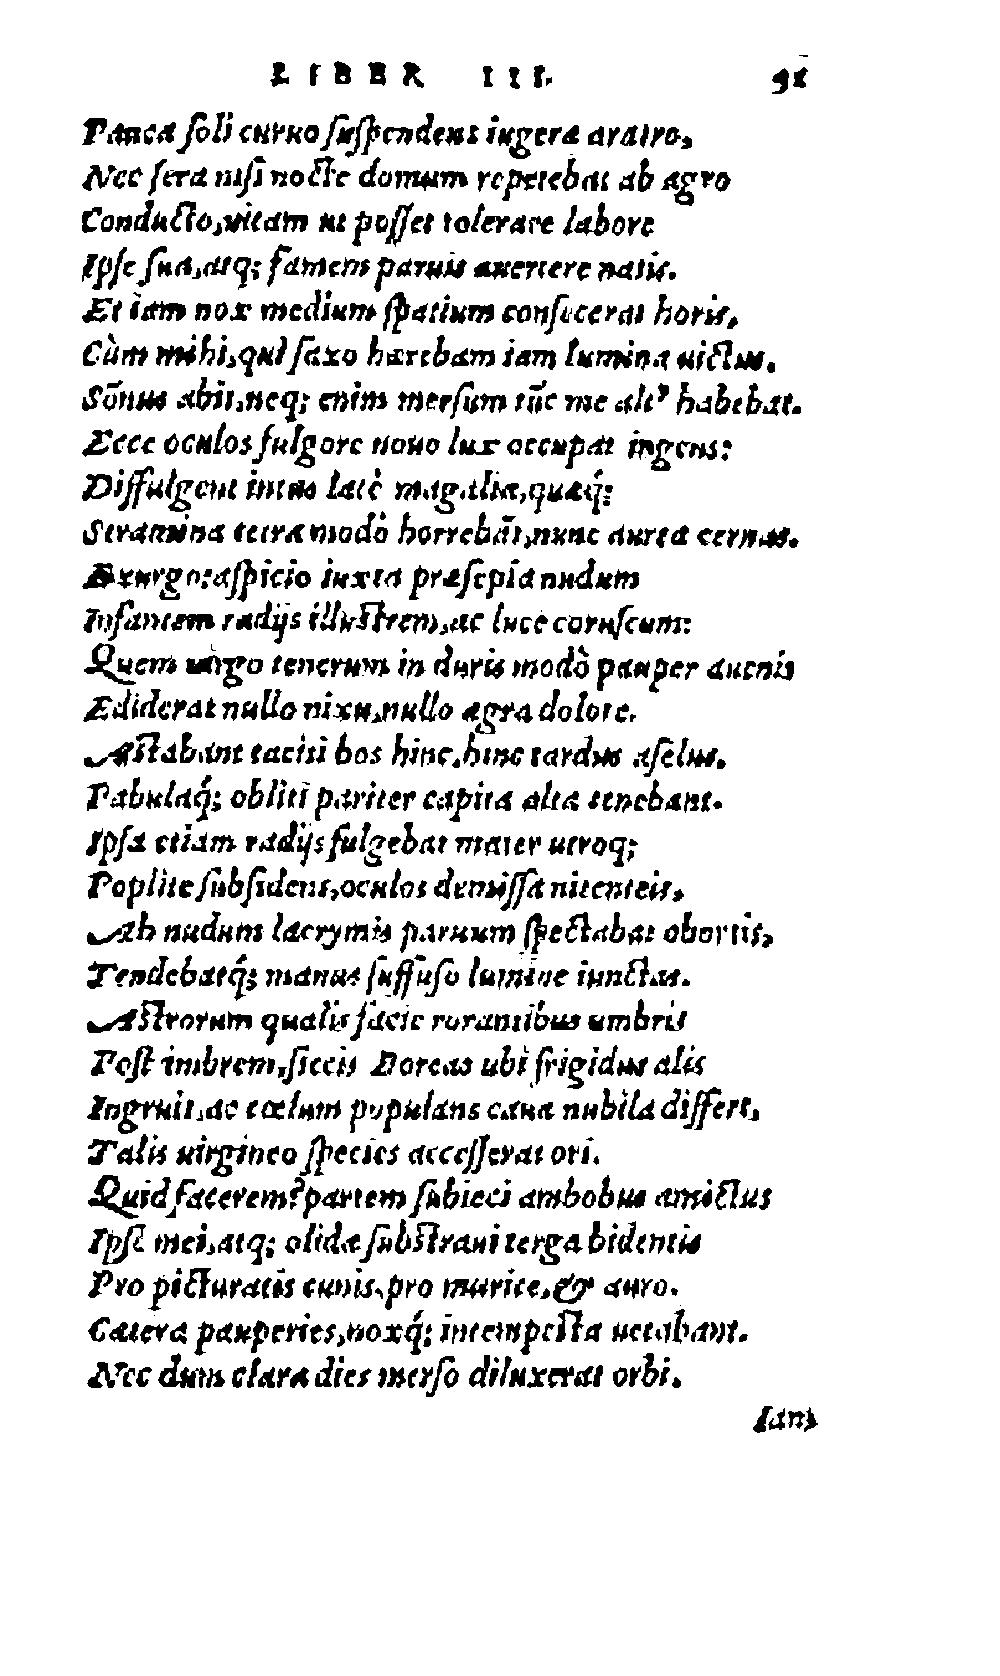 LIBER III. 91
Pauca soli curuo suspendens iugera aratro,
Nec sera nisi nocte domum repetebat ab agro
Conducto, uitam ut posset tolerare labore
Ipse sua, atq; famem paruis auertere natis.
Et iam nox medium spatium confecerat horis,
Cùm mihi, qui saxo hærebam iam lumina uictus.
Sōnus abit, neq; enim mersum tūc me alt' habebat.
Ecce oculos fulgore nouo lux occupat ingens:
Diffulgent intus latè magalia, quæq́;
Stramina tetra modò horrebāt, nunc aurea cernas.
Exurgo: aspicio iuxta præsepia nudum
Infantem radijs illustrem, ac luce coruscum:
Quem uirgo tenerum in duris modò pauper auenis
Ediderat nullo nixu, nullo ægra dolore.
Astabant taciti bos hinc, hinc tardus aselus.
Pabulaq́; obliti pariter capita alta tenebant.
Ipsa etiam radijs fulgebat mater utroq;
Poplite subsidens, oculos demissa nitenteis,
Ab nudum lacrymis paruum spectabat obortis,
Tendebatq́; manus suffuso lumine iunctas.
Astrorum qualis facie rorantibus umbris
Post imbrem, siccis Boreas ubi frigidus alis
Ingruit, ac cœlum populans caua nubila differt,
Talis uirgineo species accesserat ori.
Quid facerem? partem subieci ambobus amictus
Ipse mei, atq; olidæ substraui terga bidentis
Pro picturatis cunis, pro murice, & auro.
Cætera pauperies, noxq́; intempesta uetabant.
Nec dum clara dies merso diluxerat orbi.
Iam